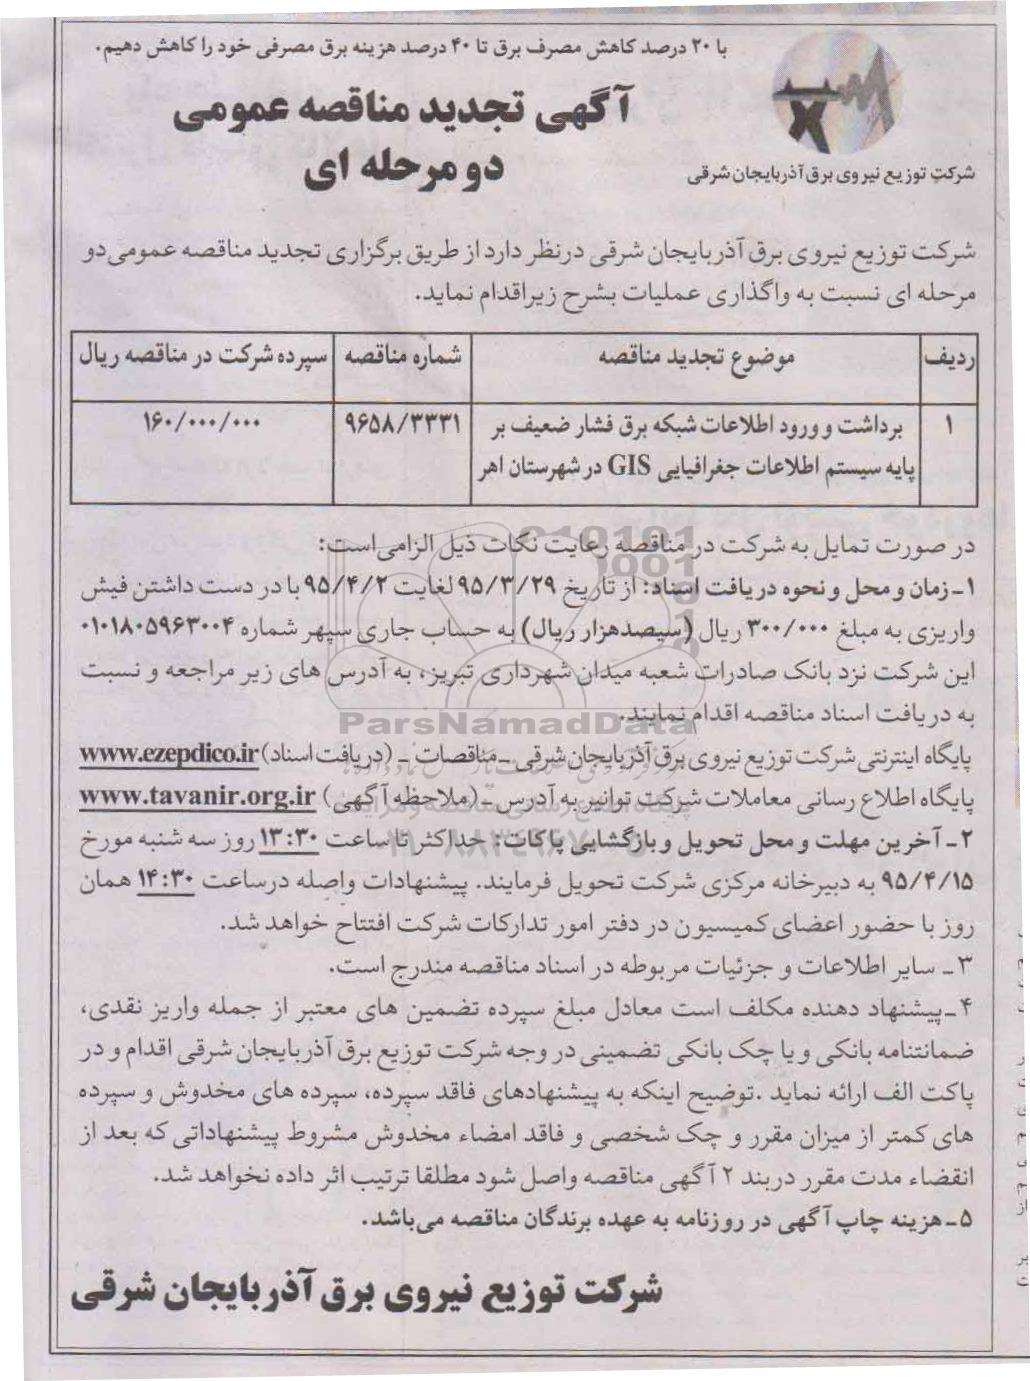 با ۲۰ درصد کاهش مصرف برق تا ۴۰ درصد هزینه برق مصرفی خود را کاهش دهیم.
آگهی تجدید مناقصه عمومی
دو مرحله ای
شرکت توزیع نیروی برق آذربایجان شرقی
شرکت توزیع نیروی برق آذربایجان شرقی درنظر دارد از طریق برگزاری تجدید مناقصه عمومی دو
مرحله ای نسبت به واگذاری عملیات بشرح زیراقدام نماید.
ردیف موضوع تجدید مناقصه شماره مناقصه سپرده شرکت در مناقصه ریال
۱ برداشت و ورود اطلاعات شبکه برق فشار ضعیف بر ۹۶۵۸/۳۳۳۱ ۱۶۰/۰۰۰/۰۰۰
پایه سیستم اطلاعات جغرافیایی GIS در شهرستان اهر
در صورت تمایل به شرکت در مناقصه رعایت نکات ذیل الزامی است:
۱ـ زمان و محل و نحوه دریافت اسناد: از تاریخ ۹۵/۳/۲۹ لغایت ۹۵/۴/۲ با در دست داشتن فیش
واریزی به مبلغ ۳۰۰/۰۰۰ ریال (سیصدهزار ریال) به حساب جاری سپهر شماره ۰۱۰۱۸۰۵۹۶۳۰۰۴
این شرکت نزد بانک صادرات شعبه میدان شهرداری تبریز، به آدرس های زیر مراجعه و نسبت
به دریافت اسناد مناقصه اقدام نمایند.
ParsNamadData
پایگاه اینترنتی شرکت توزیع نیروی برق آذربایجان شرقی ـ مناقصات ـ (دریافت اسناد) www.ezepdico.ir
پایگاه اطلاع رسانی معاملات شرکت توانیر به آدرس ـ (ملاحظه آگهی) www.tavanir.org.ir
۲ ـ آخرین مهلت و محل تحویل و بازگشایی پاکات: حداکثر تا ساعت ۱۳:۳۰ روز سه شنبه مورخ
۹۵/۴/۱۵ به دبیرخانه مرکزی شرکت تحویل فرمایند. پیشنهادات واصله درساعت ۱۴:۳۰ همان
روز با حضور اعضای کمیسیون در دفتر امور تدارکات شرکت افتتاح خواهد شد.
۳ ـ سایر اطلاعات و جزئیات مربوطه در اسناد مناقصه مندرج است.
۴ ـ پیشنهاد دهنده مکلف است معادل مبلغ سپرده تضمین های معتبر از جمله واریز نقدی،
ضمانتنامه بانکی و یا چک بانکی تضمینی در وجه شرکت توزیع برق آذربایجان شرقی اقدام و در
پاکت الف ارائه نماید .توضیح اینکه به پیشنهادهای فاقد سپرده، سپرده های مخدوش و سپرده
های کمتر از میزان مقرر و چک شخصی و فاقد امضاء مخدوش مشروط پیشنهاداتی که بعد از
انقضاء مدت مقرر دربند ۲ آگهی مناقصه واصل شود مطلقا ترتیب اثر داده نخواهد شد.
۵ ـ هزینه چاپ آگهی در روزنامه به عهده برندگان مناقصه می باشد.
شرکت توزیع نیروی برق آذربایجان شرقی